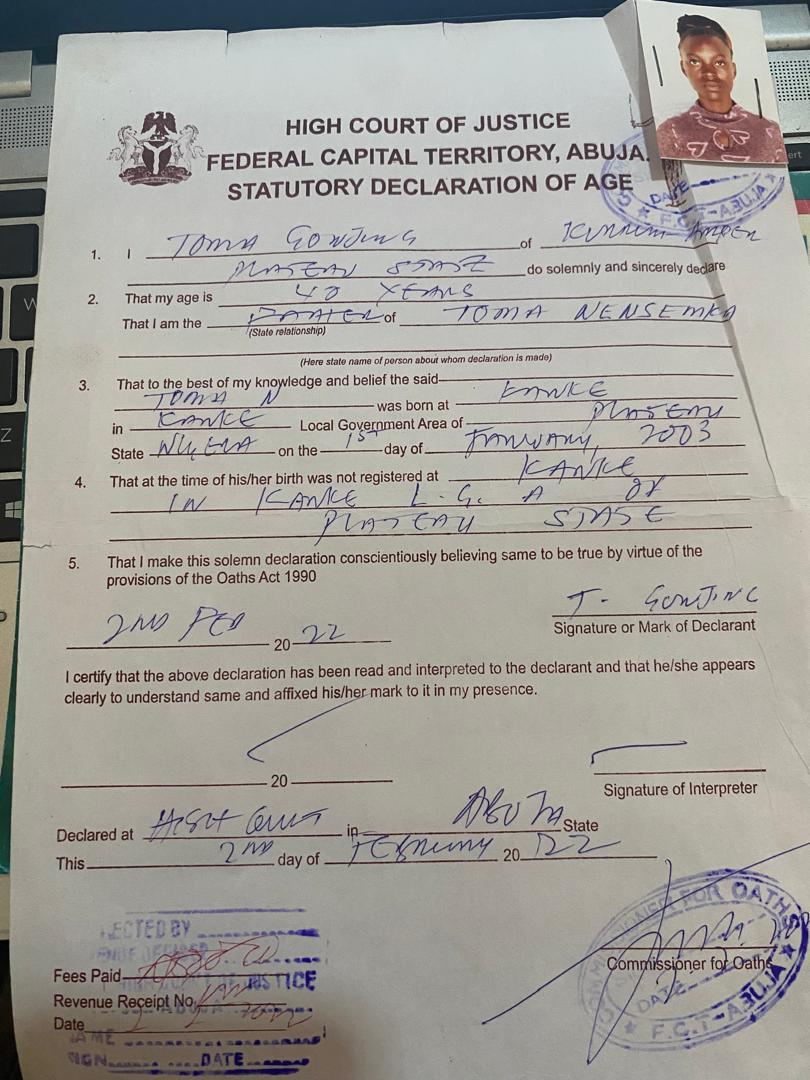 HIGH COURT OF JUSTICE
FEDERAL CAPITAL TERRITORY, ABUJA.
STATUTORY DECLARATION OF AGE
DATE
F.C.T-ABUJA
1. I TOMA GONJING of
PLATEAU STATE do solemnly and sincerely declare
2. That my age is 40 YEARS
That I am the of TOMA NENSEMKA
(State relationship)
(Here state name of person about whom declaration is made)
3. That to the best of my knowledge and belief the said
TOMA N was born at KANKE
in KANKE Local Government Area of PLATEAU
State on the 1ST day of January, 2003
4. That at the time of his/her birth was not registered at KANKE
IN KANKE L.G.A OF
PLATEAU STATE
5. That I make this solemn declaration conscientiously believing same to be true by virtue of the
provisions of the Oaths Act 1990
2ND FEB 20 22
T. GONJING
Signature or Mark of Declarant
I certify that the above declaration has been read and interpreted to the declarant and that he/she appears
clearly to understand same and affixed his/her mark to it in my presence.
20
Signature of Interpreter
Declared at High Court in ABUJA State
This 2ND day of February 20 22
COMMISSIONER FOR OATHS
Commissioner for Oaths
DATE
F.C.T-ABUJA
ECTED BY
Fees Paid
JUSTICE
Revenue Receipt No
Date
AME
SIGN DATE